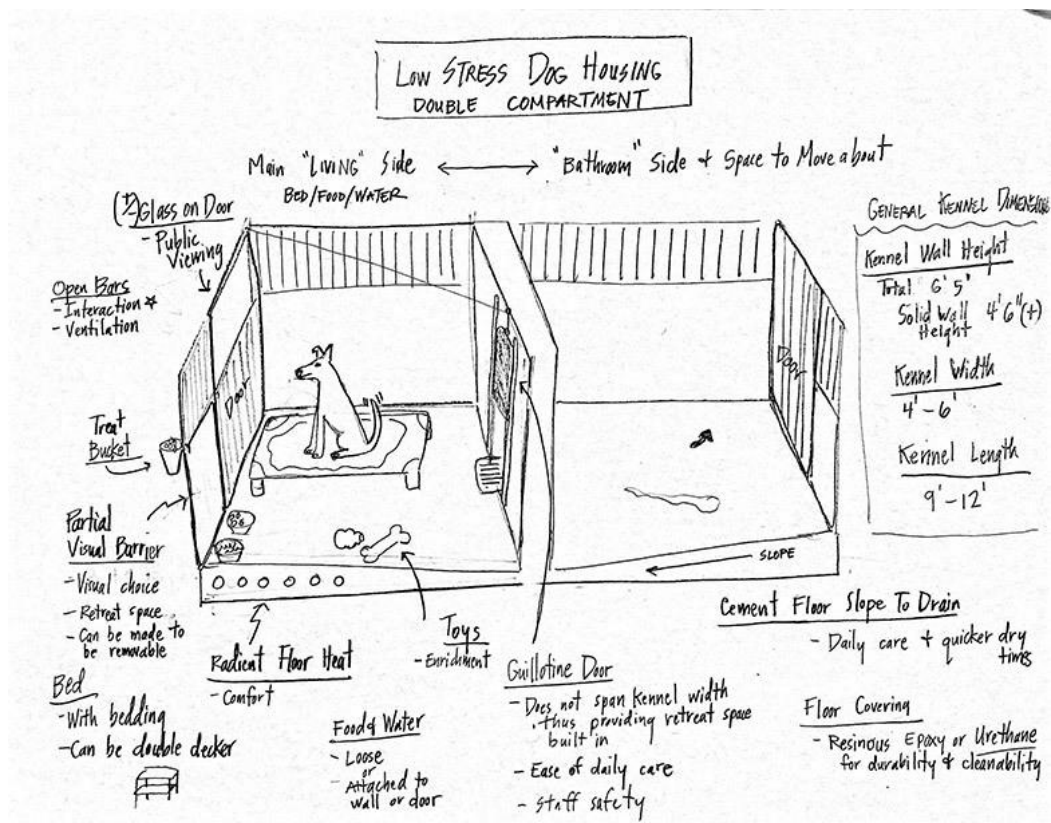 Low Stress Dog Housing
Double Compartment
Main "Living" Side
Bed/Food/Water
"Bathroom" Side + Space to Move about
(½) Glass on Door
- Public
Viewing
Open Bars
- Interaction ☆
- Ventilation
Door
Treat
Bucket
Partial
Visual Barrier
- Visual choice
- Retreat space
- Can be made to
be removable
Bed
- With bedding
- Can be double decker
Radient Floor Heat
- Comfort
Food & Water
- Loose
or
- Attached to
wall or door
Toys
- Enrichment
Guillotine Door
- Does not span kennel width
thus providing retreat space
built in
- Ease of daily care
- Staff safety
Door
SLOPE
Cement Floor Slope To Drain
- Daily care + quicker dry
times
Floor Covering
- Resinous Epoxy or Urethane
for durability & cleanability
General Kennel Dimensions
Kennel Wall Height
Total 6' 5"
Solid Wall 4' 6"(+)
Height
Kennel Width
4' - 6'
Kennel Length
9' - 12'